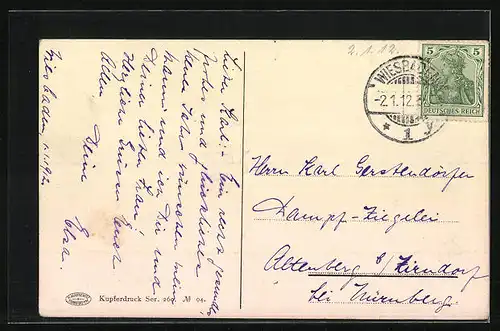 Lieber Karl! – Ein recht gesundes
frohes und glückliches
neues Jahr wünschen mein
Mann und ich Dir und
Deiner lieben Frau!
Herzlich grüsst Euch
Alle
Deine
Elsa.
Wiesbaden, 1.1.1912.
Kupferdruck Ser. 260 № 04.
2.1.12.
WIESBADEN
-2.1.12.
* 1
5 5
DEUTSCHES REICH
Herrn Karl Gerstendörfer
Dampf-Ziegelei
Altenberg b/Zirndorf
bei Nürnberg.